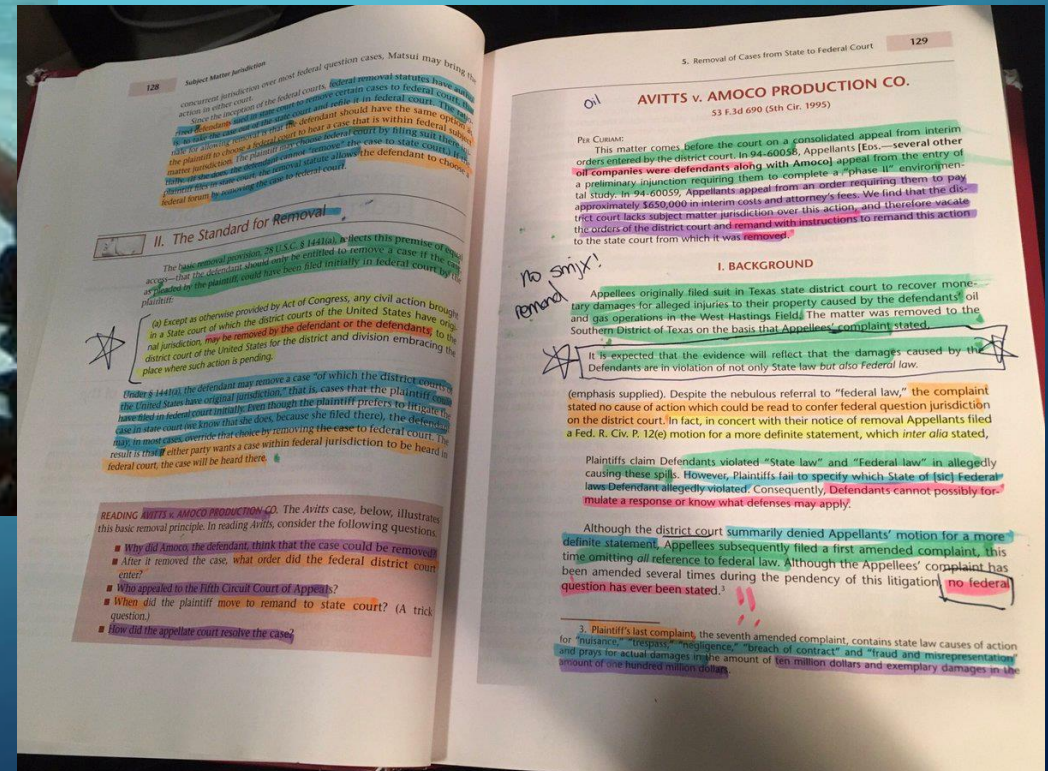 128 Subject Matter Jurisdiction
concurrent jurisdiction over most federal question cases, Matsui may bring the
action in either court.
Since the inception of the federal courts, federal removal statutes have
defendants sued in state court to remove certain cases to federal court, that
is, to take the case out of the state court and refile it in federal court. The
for allowing removal is that the defendant should have the same option as
the plaintiff to choose a federal court to bear a case that is within federal subject
matter jurisdiction. The plaintiff may choose federal court by filing suit there
If she does, the defendant cannot "remove" the case to state court.) If
plaintiff files in state court, the removal statute allows the defendant to choose a
federal forum by removing the case to federal court.
II. The Standard for Removal
The basic removal provision, 28 U.S.C. § 1441(a), reflects this premise of equal
access—that the defendant should only be entitled to remove a case if the case,
as pleaded by the plaintiff, could have been filed initially in federal court by the
plaintiff:
(a) Except as otherwise provided by Act of Congress, any civil action brought
in a State court of which the district courts of the United States have
nal jurisdiction, may be removed by the defendant or the defendants, to the
district court of the United States for the district and division embracing the
place where such action is pending.
Under § 1441(a), the defendant may remove a case "of which the district courts of
the United States have original jurisdiction," that is, cases that the plaintiff could
have filed in federal court initially. Even though the plaintiff prefers to litigate the
case in state court (we know that she does, because she filed there), the defendant
may, in most cases, override that choice by removing the case to federal court. The
result is that if either party wants a case within federal jurisdiction to be heard in
federal court, the case will be heard there.
READING AVITTS v. AMOCO PRODUCTION CO. The Avitts case, below, illustrates
this basic removal principle. In reading Avitts, consider the following questions.
■ Why did Amoco, the defendant, think that the case could be removed?
■ After it removed the case, what order did the federal district court
enter?
■ Who appealed to the Fifth Circuit Court of Appeals?
■ When did the plaintiff move to remand to state court? (A trick
question.)
■ How did the appellate court resolve the case?
5. Removal of Cases from State to Federal Court 129
Oil
AVITTS v. AMOCO PRODUCTION CO.
53 F.3d 690 (5th Cir. 1995)
PER CURIAM:
This matter comes before the court on a consolidated appeal from interim
orders entered by the district court. In 94-60058, Appellants [Eds.—several other
oil companies were defendants along with Amoco] appeal from the entry of
a preliminary injunction requiring them to complete a "phase II" environmen-
tal study. In 94-60059, Appellants appeal from an order requiring them to pay
approximately $650,000 in interim costs and attorney's fees. We find that the dis-
trict court lacks subject matter jurisdiction over this action, and therefore vacate
the orders of the district court and remand with instructions to remand this action
to the state court from which it was removed.
no smjx!
remand
I. BACKGROUND
Appellees originally filed suit in Texas state district court to recover mone-
tary damages for alleged injuries to their property caused by the defendants' oil
and gas operations in the West Hastings Field. The matter was removed to the
Southern District of Texas on the basis that Appellees' complaint stated,
It is expected that the evidence will reflect that the damages caused by the
Defendants are in violation of not only State law but also Federal law.
(emphasis supplied). Despite the nebulous referral to "federal law," the complaint
stated no cause of action which could be read to confer federal question jurisdiction
on the district court. In fact, in concert with their notice of removal Appellants filed
a Fed. R. Civ. P. 12(e) motion for a more definite statement, which inter alia stated,
Plaintiffs claim Defendants violated "State law" and "Federal law" in allegedly
causing these spills. However, Plaintiffs fail to specify which State of [sic] Federal
laws Defendant allegedly violated. Consequently, Defendants cannot possibly for-
mulate a response or know what defenses may apply.
Although the district court summarily denied Appellants' motion for a more
definite statement, Appellees subsequently filed a first amended complaint, this
time omitting all reference to federal law. Although the Appellees' complaint has
been amended several times during the pendency of this litigation, no federal
question has ever been stated.³ !!
3. Plaintiff's last complaint, the seventh amended complaint, contains state law causes of action
for "nuisance," "trespass," "negligence," "breach of contract" and "fraud and misrepresentation"
and prays for actual damages in the amount of ten million dollars and exemplary damages in the
amount of one hundred million dollars.